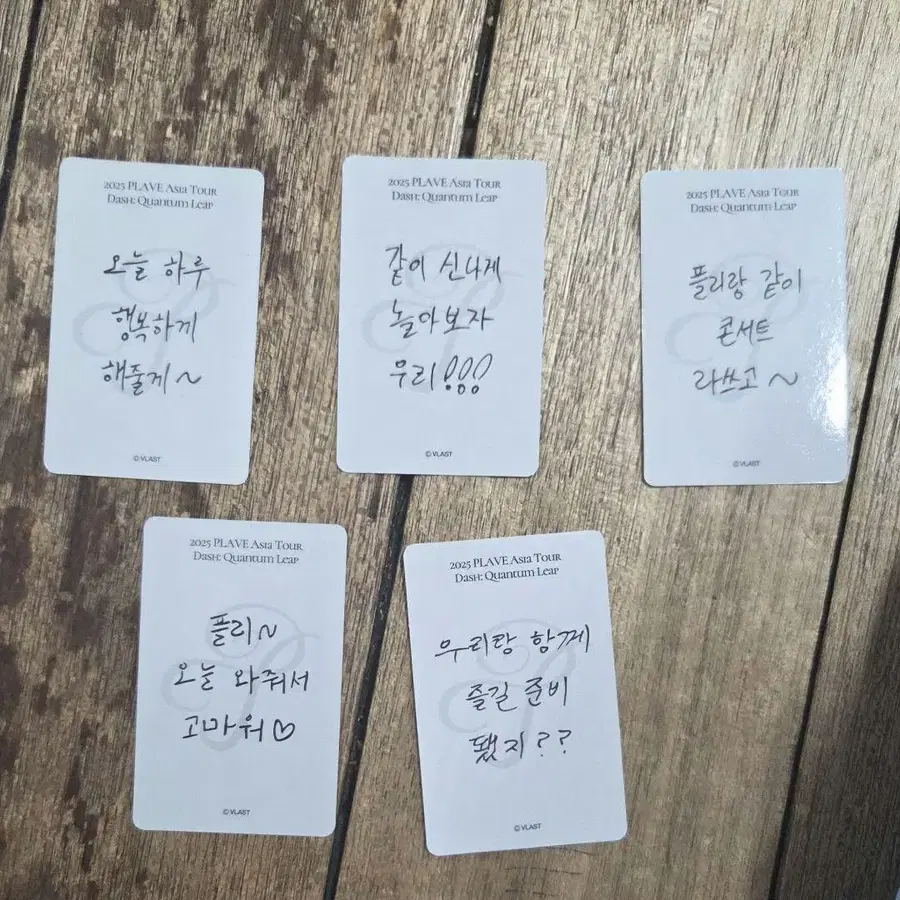 2025 PLAVE Asia Tour
Dash: Quantum Leap
오늘 하루
행복하게
해줄게~
© VLAST
2025 PLAVE Asia Tour
Dash: Quantum Leap
같이 신나게
놀아보자
우리!!!
© VLAST
2025 PLAVE Asia Tour
Dash: Quantum Leap
플리랑 같이
콘서트
라쓰고~
© VLAST
2025 PLAVE Asia Tour
Dash: Quantum Leap
플리~
오늘 와줘서
고마워♡
© VLAST
2025 PLAVE Asia Tour
Dash: Quantum Leap
우리랑 함께
즐길 준비
됐지??
© VLAST